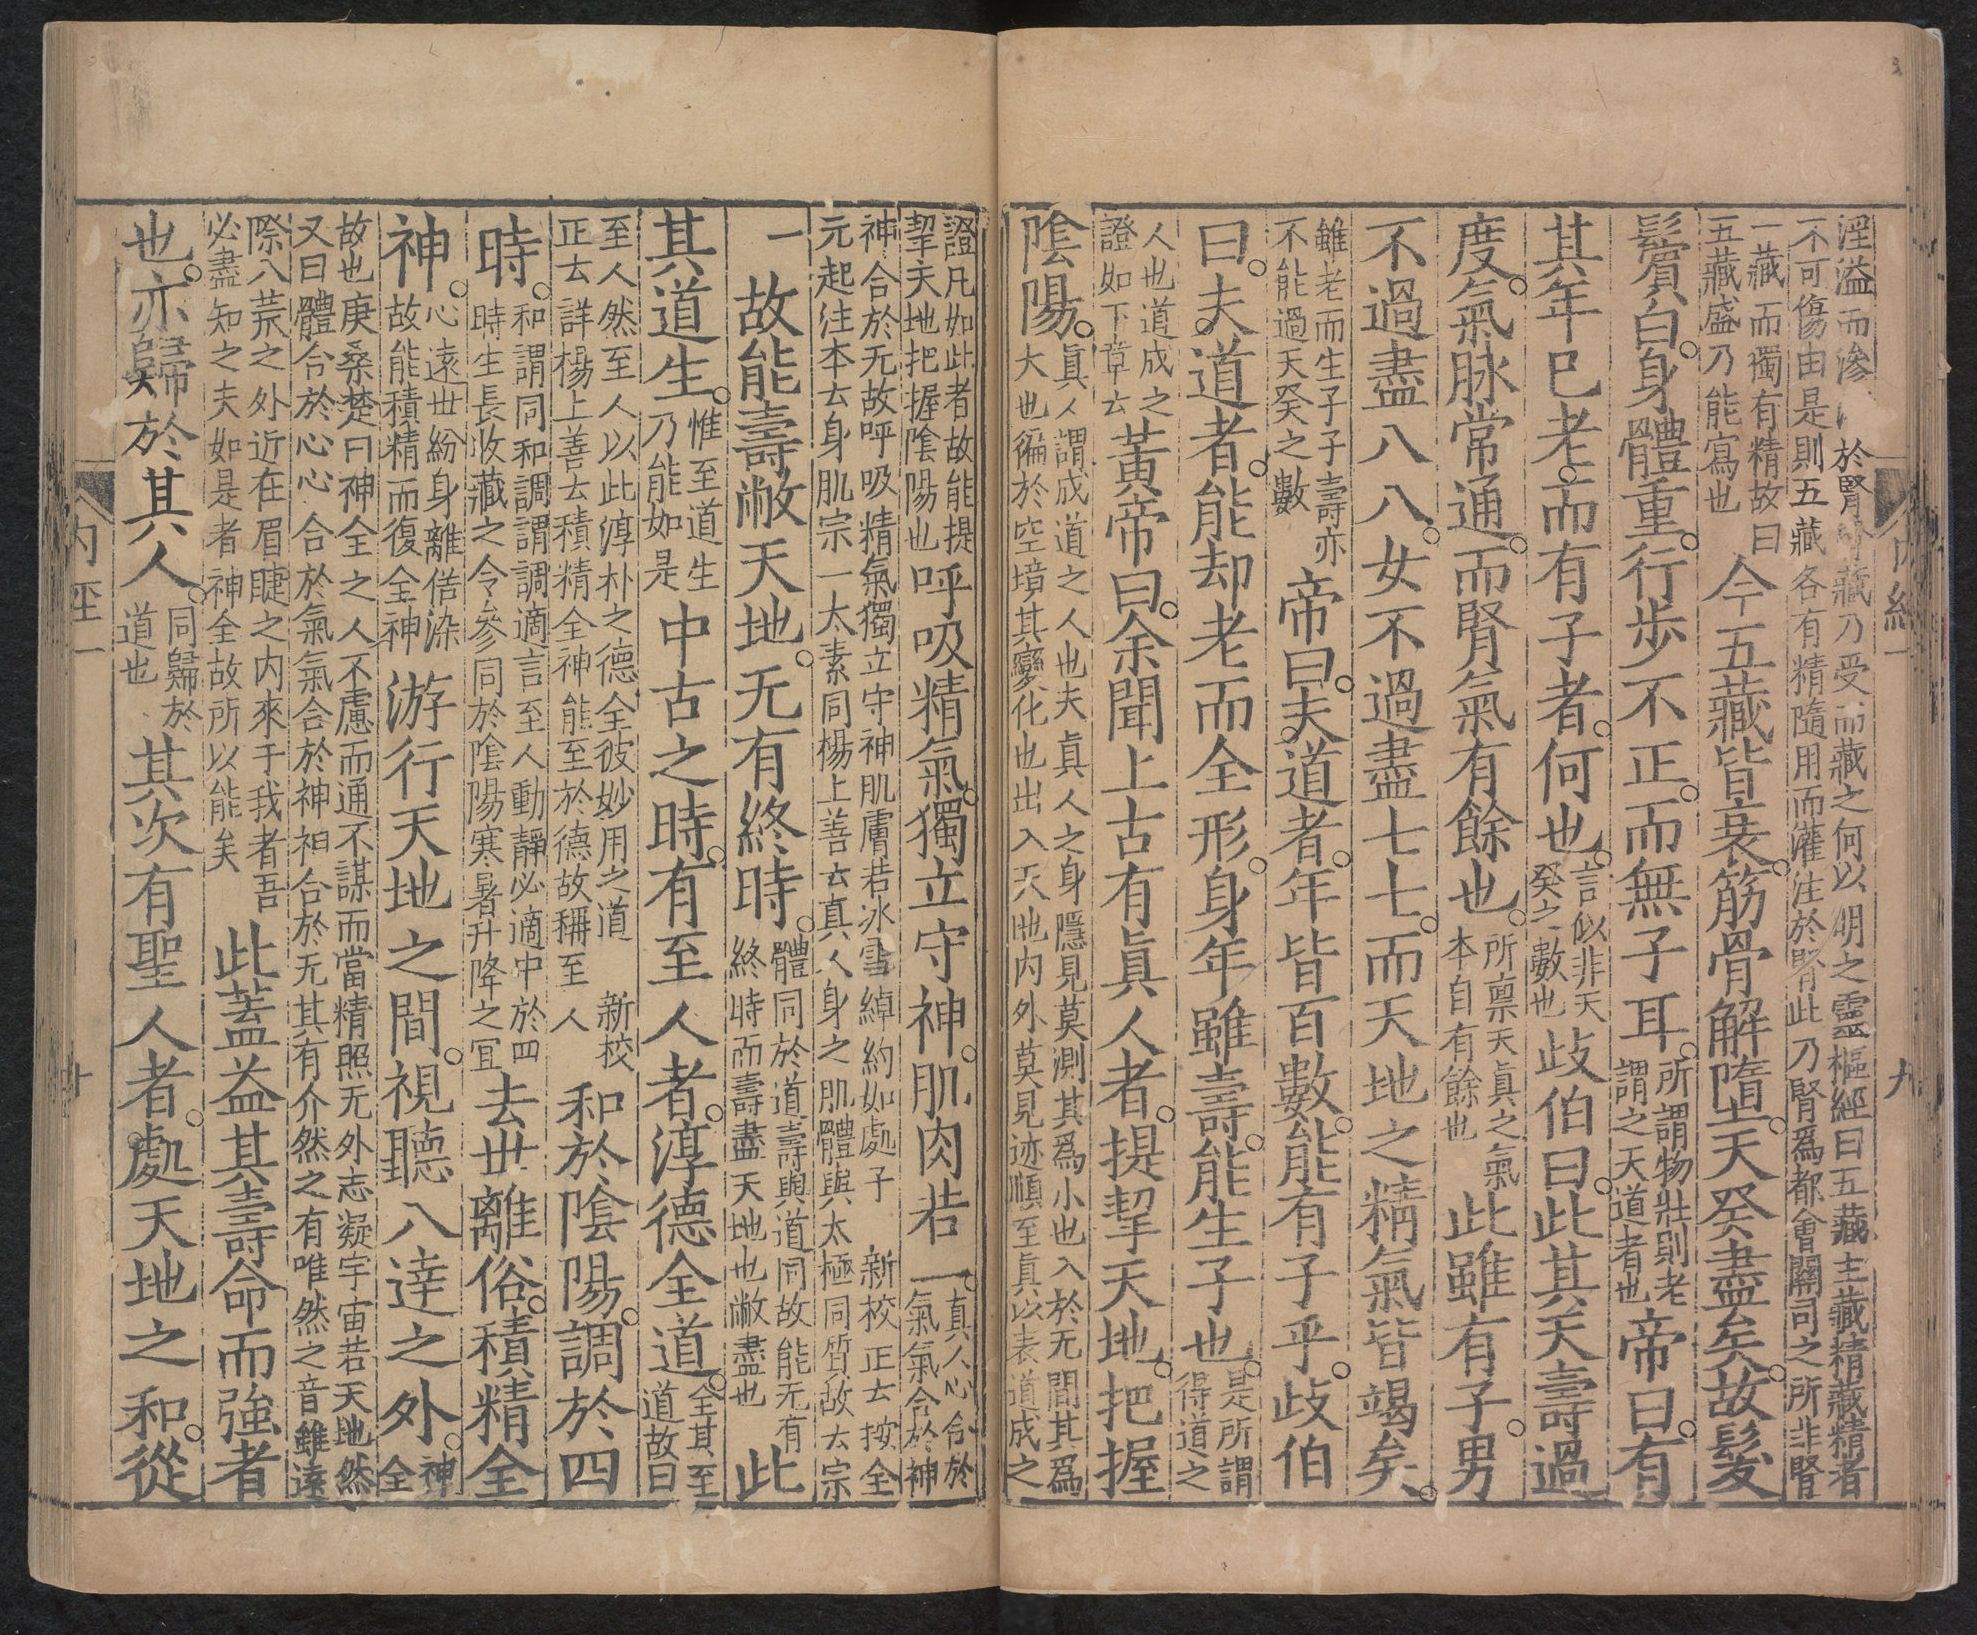 淫溢而滲於腎藏乃受而藏之何以明之靈樞經曰五藏主藏精藏精者
不可傷由是則五藏各有精隨用而灌注於腎此乃腎爲都會關司之所非腎
一藏而獨有精故曰五藏盛乃能寫也今五藏皆衰。筋骨解墮。天癸盡矣。故髮
鬢白。身體重。行步不正。而無子耳。所謂物壯則老謂之天道者也帝曰。有
其年已老。而有子者。何也。言似非天癸之數也歧伯曰。此其天壽過
度。氣脉常通。而腎氣有餘也。所禀天眞之氣本自有餘也此雖有子。男
不過盡八八。女不過盡七七。而天地之精氣皆竭矣。
雖老而生子子壽亦不能過天癸之數帝曰。夫道者。年皆百數。能有子乎。歧伯
曰。夫道者。能却老而全形。身年雖壽。能生子也。是所謂得道之
人也道成之證如下章云黃帝曰。余聞上古有眞人者。提挈天地。把握
陰陽。真人謂成道之人也夫眞人之身隱見莫測其爲小也入於无間其爲
大也徧於空境其變化也出入天地内外莫見迹順至眞以表道成之
内經一
九
證凡如此者故能提挈天地把握陰陽也呼吸精氣。獨立守神。肌肉若一。真人心合於氣氣合於神
神合於无故呼吸精氣獨立守神肌膚若冰雪綽約如處子 新校正云按全
元起注本云身肌宗一太素同楊上善云真人身之肌體與太極同質故云宗
一故能壽敝天地。无有終時。體同於道壽與道同故能无有終時而壽盡天地也敝盡也此
其道生。惟至道生乃能如是中古之時。有至人者。淳德全道。全其至道故曰
至人然至人以此淳朴之德全彼妙用之道 新校正云詳楊上善云積精全神能至於德故稱至人和於陰陽。調於四
時。和謂同和調謂調適言至人動靜必適中於四時生長收藏之令參同於陰陽寒暑升降之宜去世離俗。積精全
神。心遠世紛身離俗染故能積精而復全神游行天地之間。視聽八達之外。神全
故也庚桑楚曰神全之人不慮而通不謀而當精照无外志凝宇宙若天地然
又曰體合於心心合於氣氣合於神神合於无其有介然之有唯然之音雖遠
際八荒之外近在眉睫之内來于我者吾必盡知之夫如是者神全故所以能矣此蓋益其壽命而強者
也。亦歸於其人。同歸於道也其次有聖人者。處天地之和。從
内經一
十